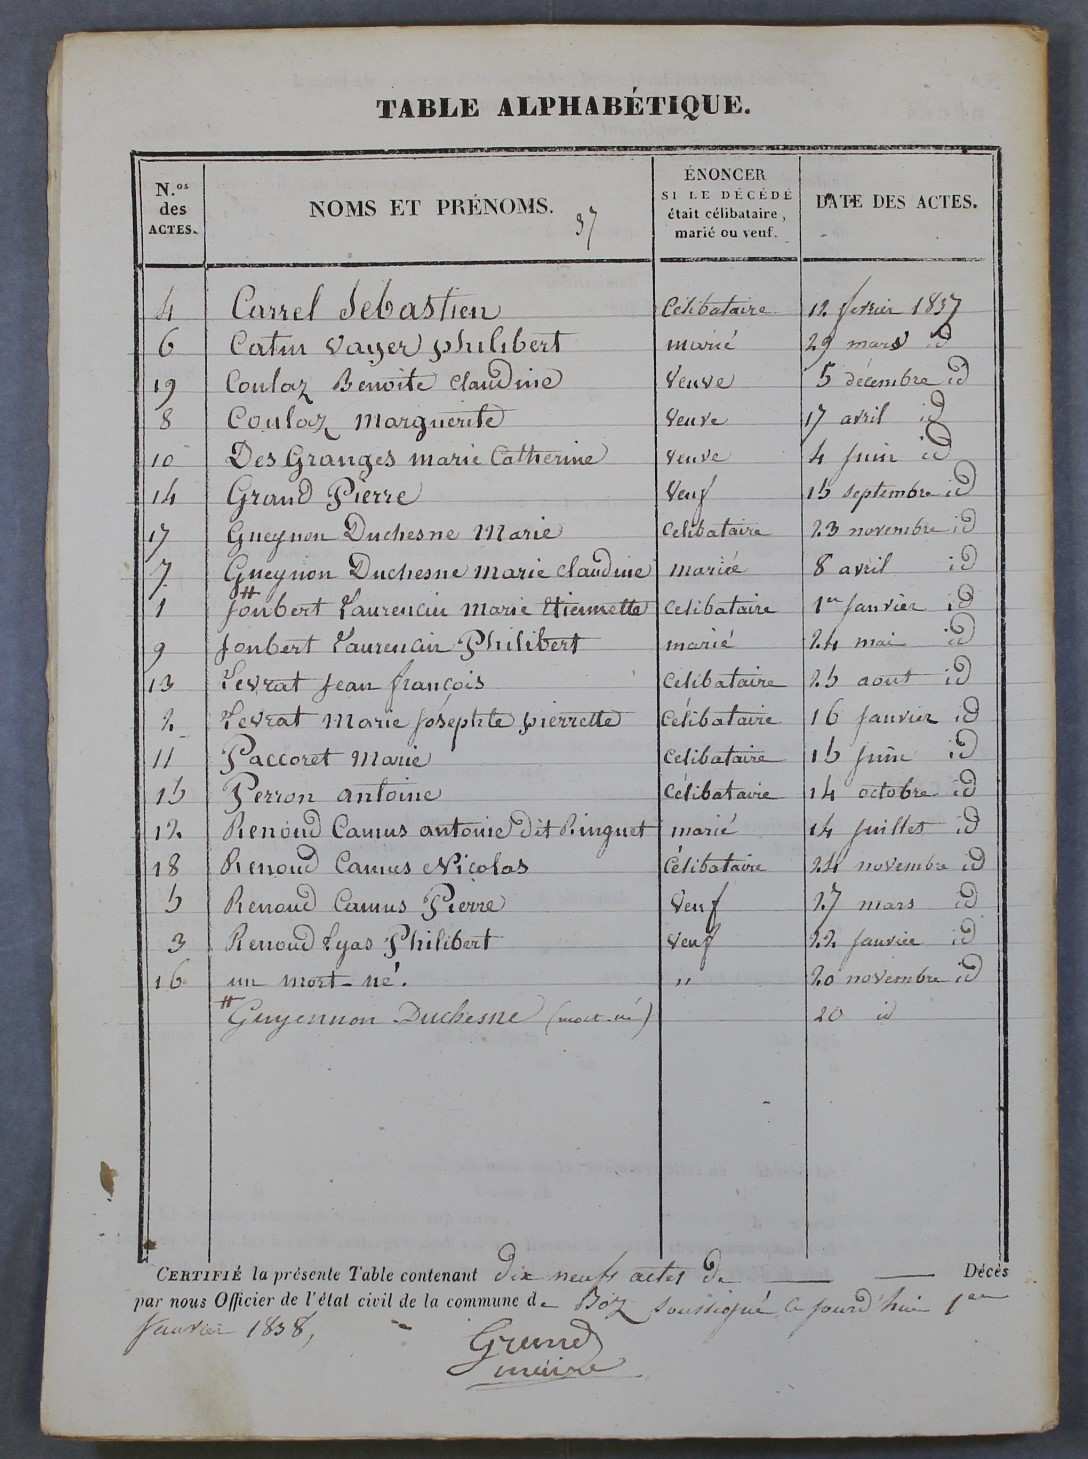 TABLE ALPHABÉTIQUE.
N.os des ACTES.
NOMS ET PRÉNOMS. 37
ÉNONCER SI LE DÉCÉDÉ était célibataire, marié ou veuf.
DATE DES ACTES.
4 Carrel Sebastien Célibataire 12 fevrier 1837
6 Catin Vayer philibert marié 29 mars id
19 Coulaz Benoite claudine Veuve 5 décembre id
8 Coulaz Marguerite Veuve 17 avril id
10 Des Granges marie Catherine Veuve 4 juin id
14 Grand Pierre Veuf 15 septembre id
17 Gueynon Duchesne Marie Celibataire 23 novembre id
7 Gueynon Duchesne marie claudine mariée 8 avril id
1 Joubert Laurencin marie Etiennette Celibataire 1er Janvier id
9 Joubert Laurencin Philibert marié 24 mai id
13 Levrat Jean françois Celibataire 25 aout id
2 Levrat Marie Joséphte pierrette Célibataire 16 Janvier id
11 Paccoret Marie Celibataire 15 Juin id
15 Perron antoine Célibataire 14 octobre id
12 Renoud Camus antoine dit Ringuet marié 14 Juillet id
18 Renoud Camus Nicolas Célibataire 24 novembre id
5 Renoud Camus Pierre Veuf 27 mars id
3 Renoud Lyas Philibert Veuf 22 Janvier id
16 un mort-né. " 20 novembre id
# Guyennon Duchesne (mort-né) 20 id
CERTIFIÉ la présente Table contenant dix neufs actes de Décès
par nous Officier de l'état civil de la commune de Boz soussigné ce jourd'hui 1er
Janvier 1838,
Grand
maire